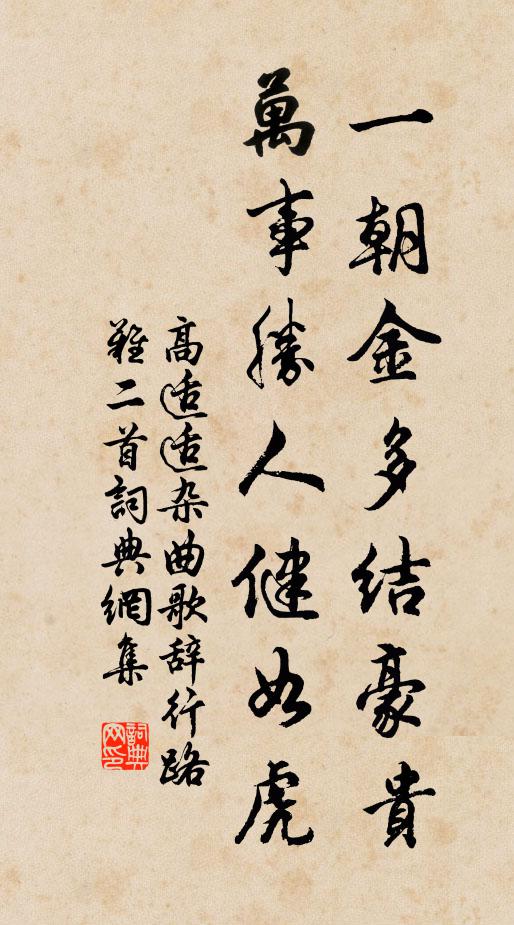 一朝金多结豪貴
萬事勝人健如虎
高适适杂曲歌辞行路
難二首詞典網集
詞典网印